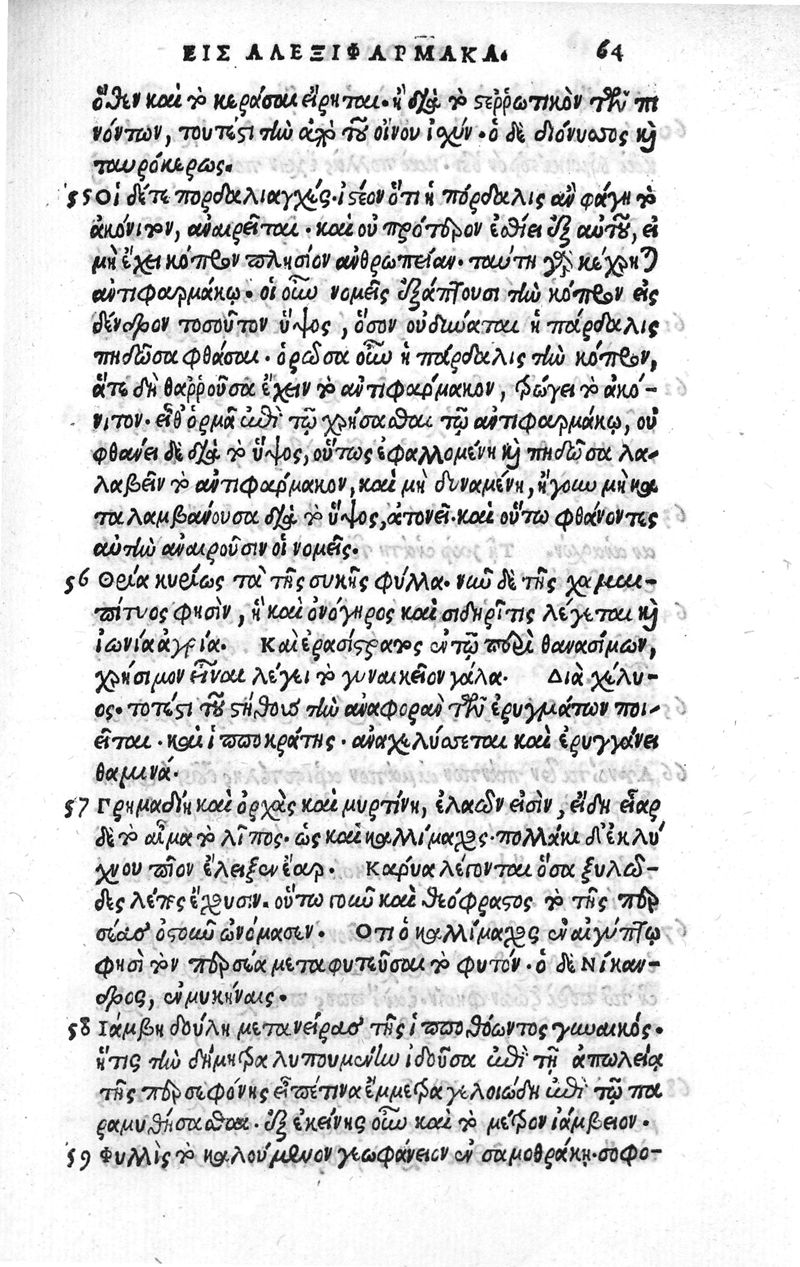 ΕΙΣ ΑΛΕΞΙΦΑΡΜΑΚΑ. 64
ὅθεν καὶ τὸ κεράσαι εἴρηται. ἢ διὰ τὸ στερρωτικὸν τῶν πι
νόντων, τουτέστι τὴν ἀπὸ τοῦ οἴνου ἰσχύν. ὁ δὲ διόνυσος καὶ
ταυρόκερως.
55 Οἱ δέ τε πορδαλιαγχές. ἰστέον ὅτι ἡ πόρδαλις ἂν φάγη τὸ
ἀκόνιτον, ἀναιρεῖται. καὶ οὐ πρότερον ἐσθίει ἐξ αὐτοῦ, εἰ
μὴ ἔχει κόπρον πλησίον ἀνθρωπείαν. ταύτη γὰρ κέχρηται
ἀντιφαρμάκῳ. οἱ οὖν νομεῖς ἐξάπτουσι τὴν κόπρον εἰς
δένδρον τοσοῦτον ὕψος, ὅσον οὐ δύναται ἡ πάρδαλις
πηδῶσα φθάσαι. ὁρῶσα οὖν ἡ πάρδαλις τὴν κόπρον,
ἅτε δὴ θαρροῦσα ἔχειν τὸ ἀντιφάρμακον, τρώγει τὸ ἀκό-
νιτον. εἶθ' ὁρμᾶ ἐπὶ τῷ χρήσασθαι τῷ ἀντιφαρμάκῳ, οὐ
φθάνει δὲ διὰ τὸ ὕψος, οὕτως ἐφαλλομένη καὶ πηδῶσα λα-
λαβεῖν τὸ ἀντιφάρμακον, καὶ μὴ δυναμένη, ἤγουν μὴ κα
ταλαμβάνουσα διὰ τὸ ὕψος, ἀτονεῖ. καὶ οὕτω φθάνοντες
αὐτὴν ἀναιροῦσιν οἱ νομεῖς.
56 Θρία κυρίως τὰ τῆς συκῆς φύλλα. νῦν δὲ τῆς χαμαι-
πίτυος φησὶν, ἣ καὶ ὀνόγηρος καὶ σιδηρῖτις λέγεται καὶ
ἰωνία ἀγρία. Καὶ ἐρασίστρατος ἐν τῷ περὶ θανασίμων,
χρήσιμον εἶναι λέγει τὸ γυναικεῖον γάλα. Διὰ χέλυ-
ος. τοτέστι τοῦ στήθους τὴν ἀναφορὰν τῶν ἐρυγμάτων ποι-
εῖται. καὶ ἱπποκράτης. ἀναχελύσσεται καὶ ἐρυγγάνει
θαμινά.
57 Γρημαδίη καὶ ὀρχὰς καὶ μυρτίνη, ἐλαιῶν εἰσὶν, εἴδη εἶαρ
δὲ τὸ αἷμα τὸ λῖπος. ὡς καὶ καλλίμαχος. πολλάκι δ' ἐκ λύ
χνου πῖον ἔλειξεν ἔαρ. Κάρυα λέγονται ὅσα ξυλώ-
δες λέπες ἔχουσιν. οὕτω γοῦν καὶ θεόφραστος τὸ τῆς περ
σέας ὀστοῦν ὠνόμασεν. Ὅτι ὁ καλλίμαχος ἐν αἰγύπτῳ
φησὶ τὸν περσέα μεταφυτεῦσαι τὸ φυτόν. ὁ δὲ Νίκαν-
δρος, ἐν μυκήναις.
58 Ἰάμβη δούλη μετανείρας τῆς ἱπποθόωντος γυναικός.
ἥτις τὴν δήμητρα λυπουμένην ἰδοῦσα ἐπὶ τῇ ἀπωλείᾳ
τῆς περσεφόνης εἶπέ τινα ἔμμετρα γελοιώδη ἐπὶ τῷ πα
ραμυθήσασθαι. ἐξ ἐκείνης οὖν καὶ τὸ μέτρον ἰάμβειον.
59 Φυλλὶς τὸ καλούμενον γεωφάνειον ἐν σαμοθράκη. σοφο-